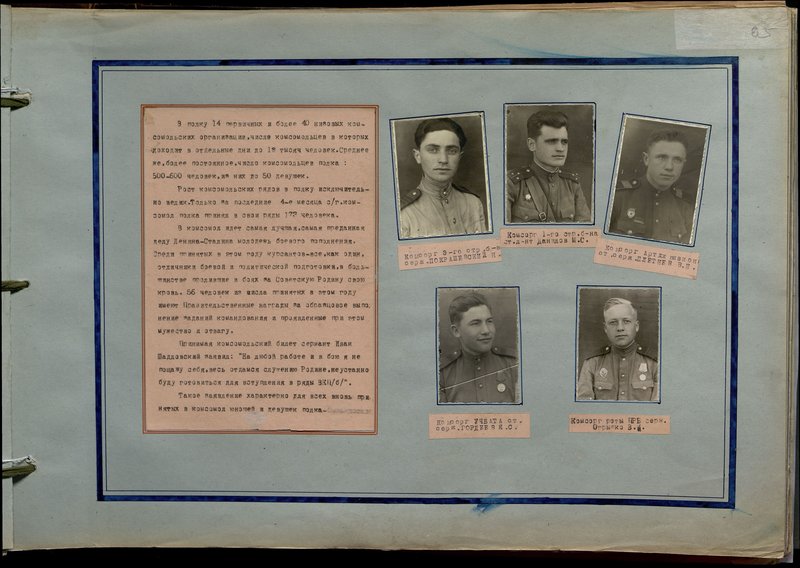 В полку 14 первичных и более 40 низовых ком-
сомольских организаций, число комсомольцев в которых
доходит в отдельные дни до 18 тысяч человек. Среднее
же, более постоянное, число комсомольцев полка :
500-600 человек, из них до 50 девушек.
Рост комсомольских рядов в полку исключитель-
но велик. Только за последние 4-е месяца с/г. ком-
сомол полка принял в свои ряды 172 человека.
В комсомол идет самая лучшая, самая преданная
делу Ленина-Сталина молодежь боевого пополнения.
Среди принятых в этом году курсантов-все, как один,
отличники боевой и политической подготовки, в боль-
шинстве пролившие в боях за Советскую Родину свою
кровь. 56 человек из числа принятых в этом году
имеют Правительственные награды за образцовое выпо
нение заданий командования и проявленные при этом
мужество и отвагу.
Принимая комсомольский билет сержант Иван
Шадловский заявил: "На любой работе и в бою я не
пощажу себя, весь отдамся служению Родине, неустанно
буду готовиться для вступления в ряды ВКП/б/".
Такое заявление характерно для всех вновь при
нятых в комсомол юношей и девушек полка.
Комсорг 3-го стр. б-на
серж.
Комсорг 1-го стр. б-на
ст. л-нт Данилов М.С.
Комсорг Артдивизиона
ст. серж. ПЛЕТНЕВ В.П.
Комсорг УЧБАТА ст.
серж. ГОРДИЕВ К.С.
Комсорг роты ПРБ серж.